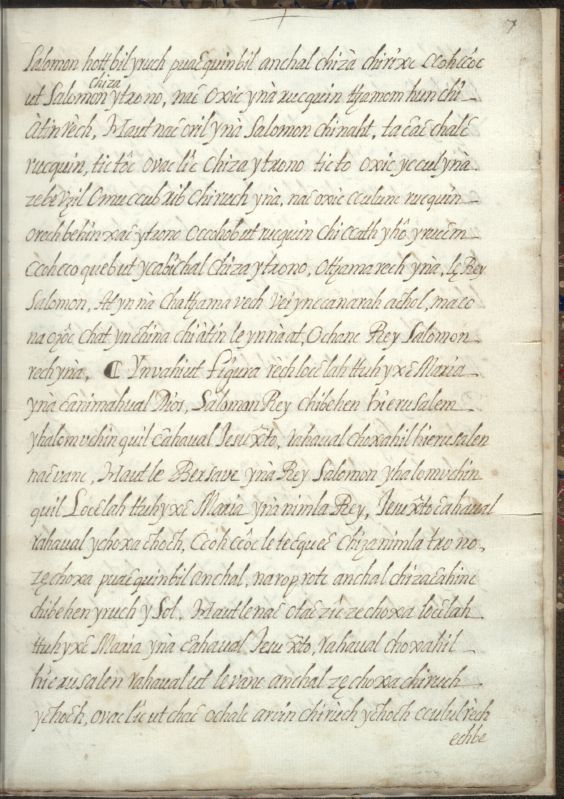 7
Salomon hottbil yruch puac quinbil anchal chiza chirixc ccohccoc
chiza
ut Salomon ytrono, nac oxic ynà rucquin tyamom hun chi
àtin rèch, Maut nac oril ynà Salomon chi naht, ta cac chalc
rucquin, tic tôc ovac lic chiza ytrono ticto oxic yccul ynà
Omuccub rib chiruch ynà, nac oxic cculunc rucquin
xac ytrono occohobut rucquin chiccath yhô yrucm
ccohcco quebut ycabichal chiza ytrono, otyama rech ynà, Rey
Salomon, At ynnà chatyama vech achol, maco
na oxôc chat ynchina chi àtin le ynnà at, Ochanc Rey Salomon
rech ynà. Ynvahi ut figura rèch locèlah ttuhyxc Maria
ynà canimahual Dios, Salomon Rey chibehen hierusalem
yhalom vchin quil cahaual Jesu xto, rahaual choxahil hierusalen
nac vanc, Maut le Bersave ynà Rey Salomon yhalomvchin
quil Locèlah ttuhyxc Maria ynà nimla Rey, Jesu xto cahaual
rahaual ychoxa choch, Ccohccôc le tecquec chiza nimla trono,
choxa puac quinbil anchal, narop rotc anchal chiza cahinc
chibehen yruch y Sol, Maut le nac choxa locèlah
ttuhyxc Maria ynà cahaual Jesu xto, rahaual choxahil
hierusalen rahaual ut le vanc anchal choxa chiruch
ychoch, ovac lic ut chac ochalc arvin chirùch ychoch ccubil rèch
echbe